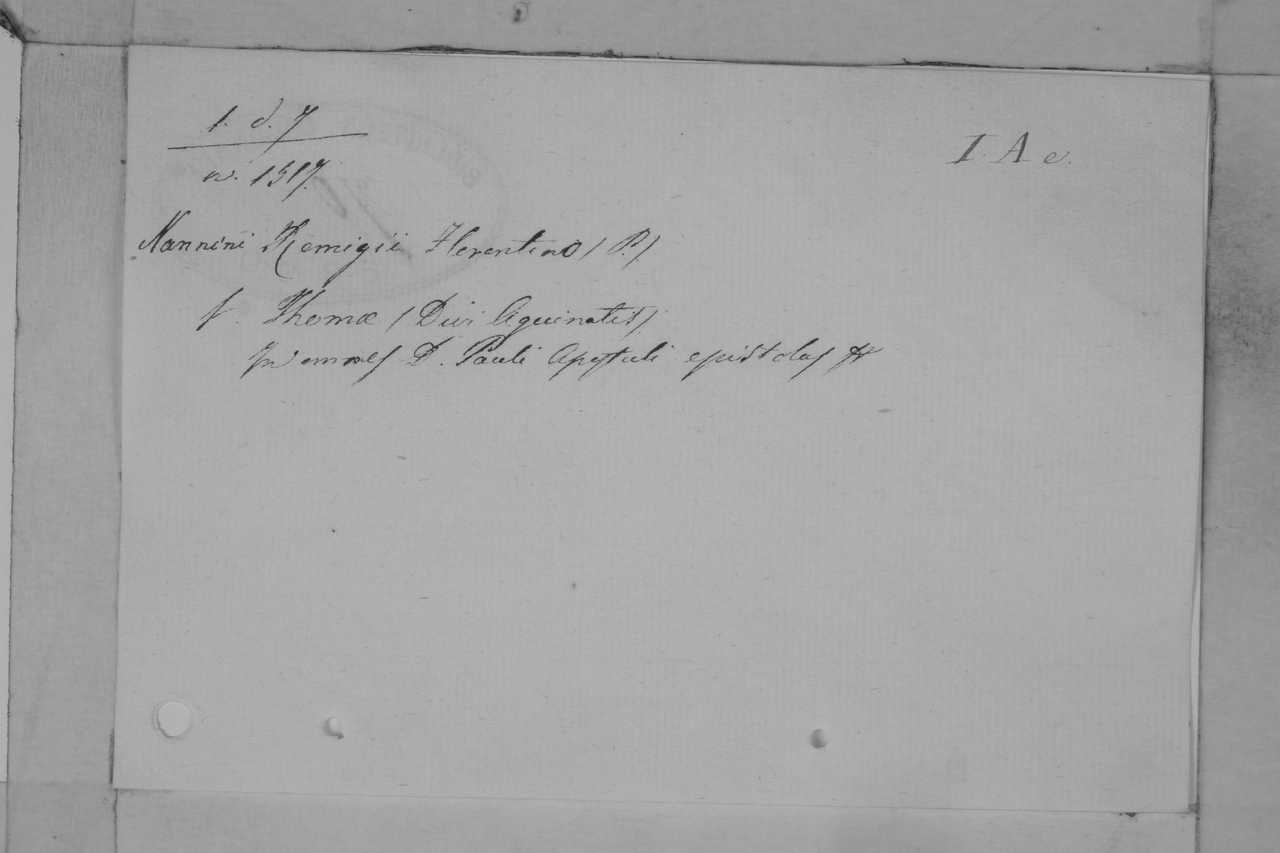 1. d. 7
I. A e.
n. 1317.
Nannini Remigii Florentino / P. /
f. Thomæ / Divi Aquinatis /
In omnes D. Pauli Apostuli epistolas